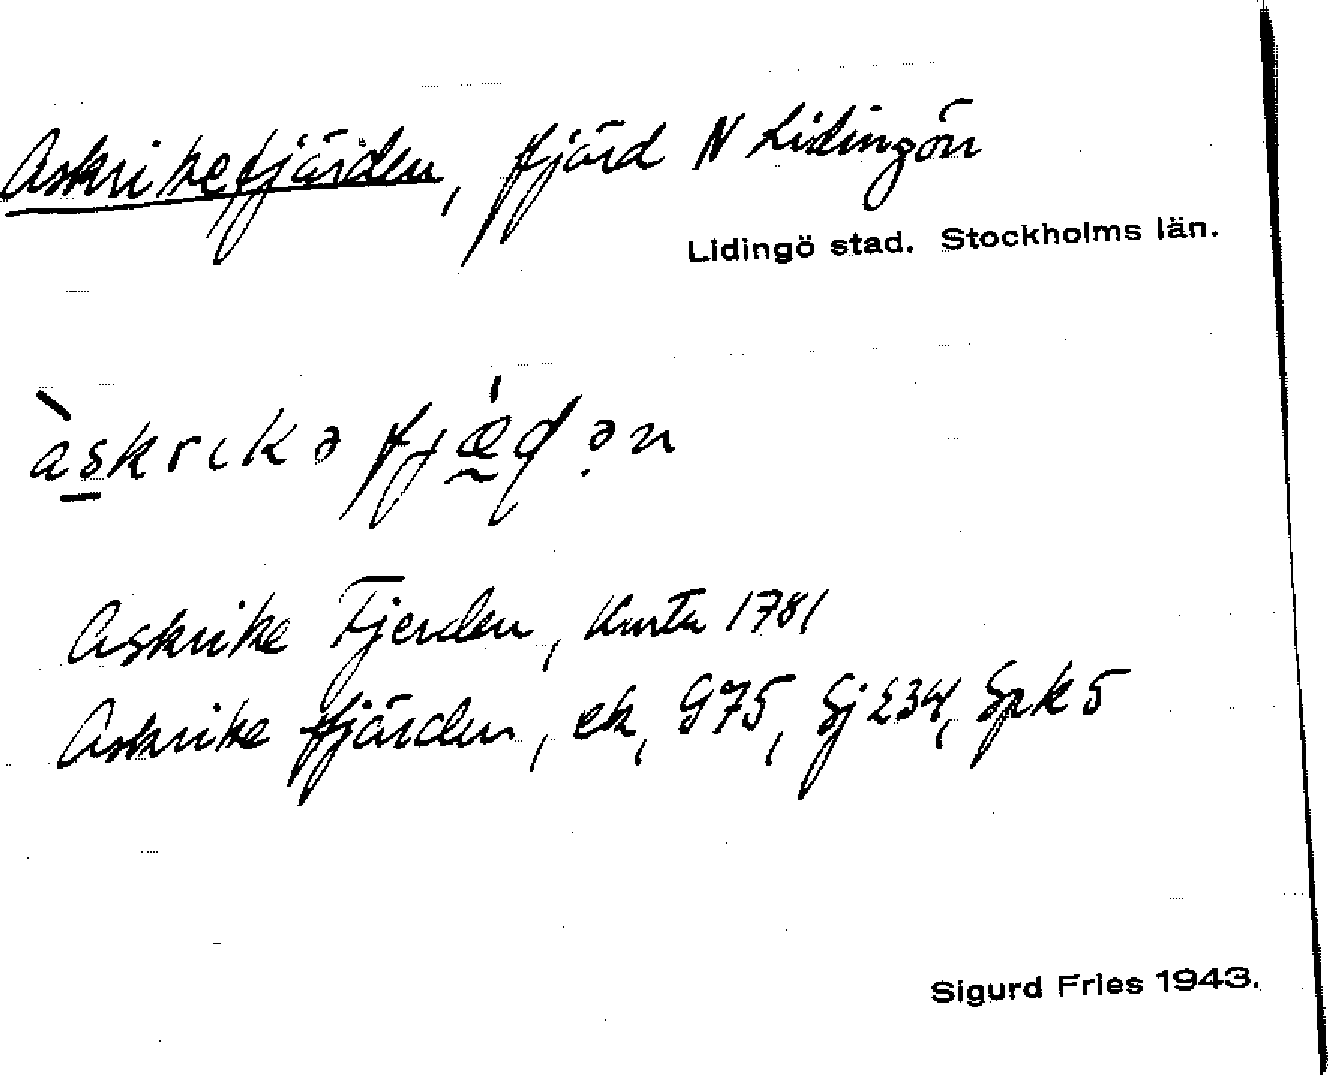 Askrikefjärden, fjärd N Lidingön
Lidingö stad. Stockholms län.
àskrɩkə fjǽɖən
Askrike Fjerden, Kurta 1781
Askrike fjärden, ek, G75, Sj 234, Spk 5
Sigurd Fries 1943.